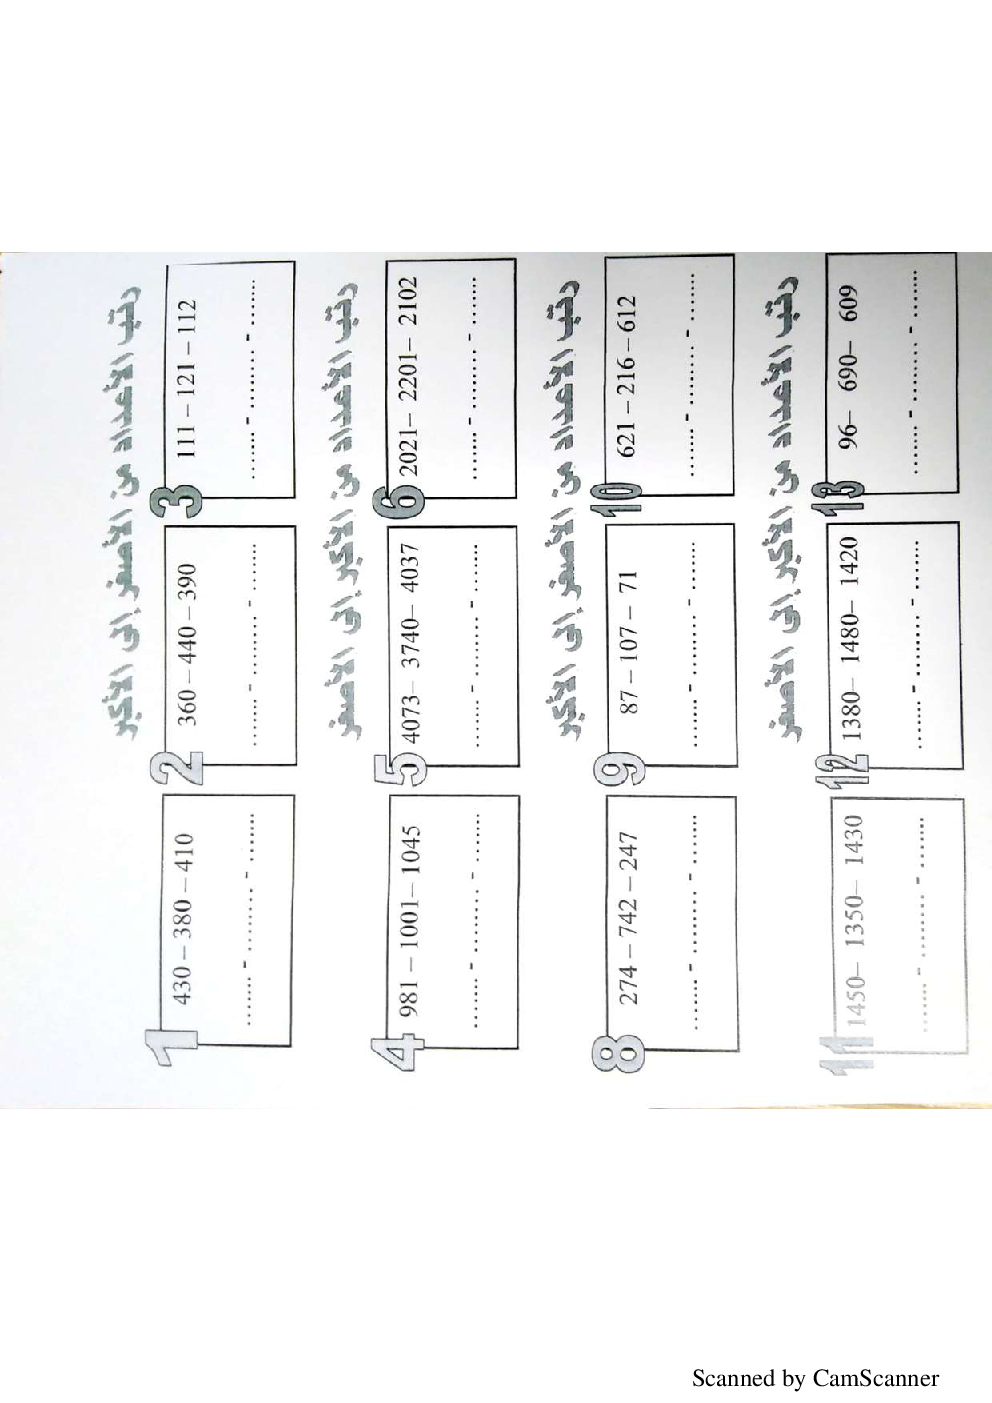 رتب الأعداد من الأصغر إلى الأكبر
1 430 – 380 – 410
....... - ......... - .......
2 360 – 440 – 390
....... - ......... - .......
3 111 – 121 – 112
....... - ......... - .......
رتب الأعداد من الأكبر إلى الأصغر
4 981 – 1001– 1045
....... - ......... - .......
5 4073– 3740– 4037
....... - ......... - .......
6 2021– 2201– 2102
....... - ......... - .......
رتب الأعداد من الأصغر إلى الأكبر
8 274 – 742 – 247
....... - ......... - .......
9 87 – 107 – 71
....... - ......... - .......
10 621 – 216 – 612
....... - ......... - .......
رتب الأعداد من الأكبر إلى الأصغر
11 1450– 1350– 1430
....... - ......... - .......
12 1380– 1480– 1420
....... - ......... - .......
13 96– 690– 609
....... - ......... - .......
Scanned by CamScanner